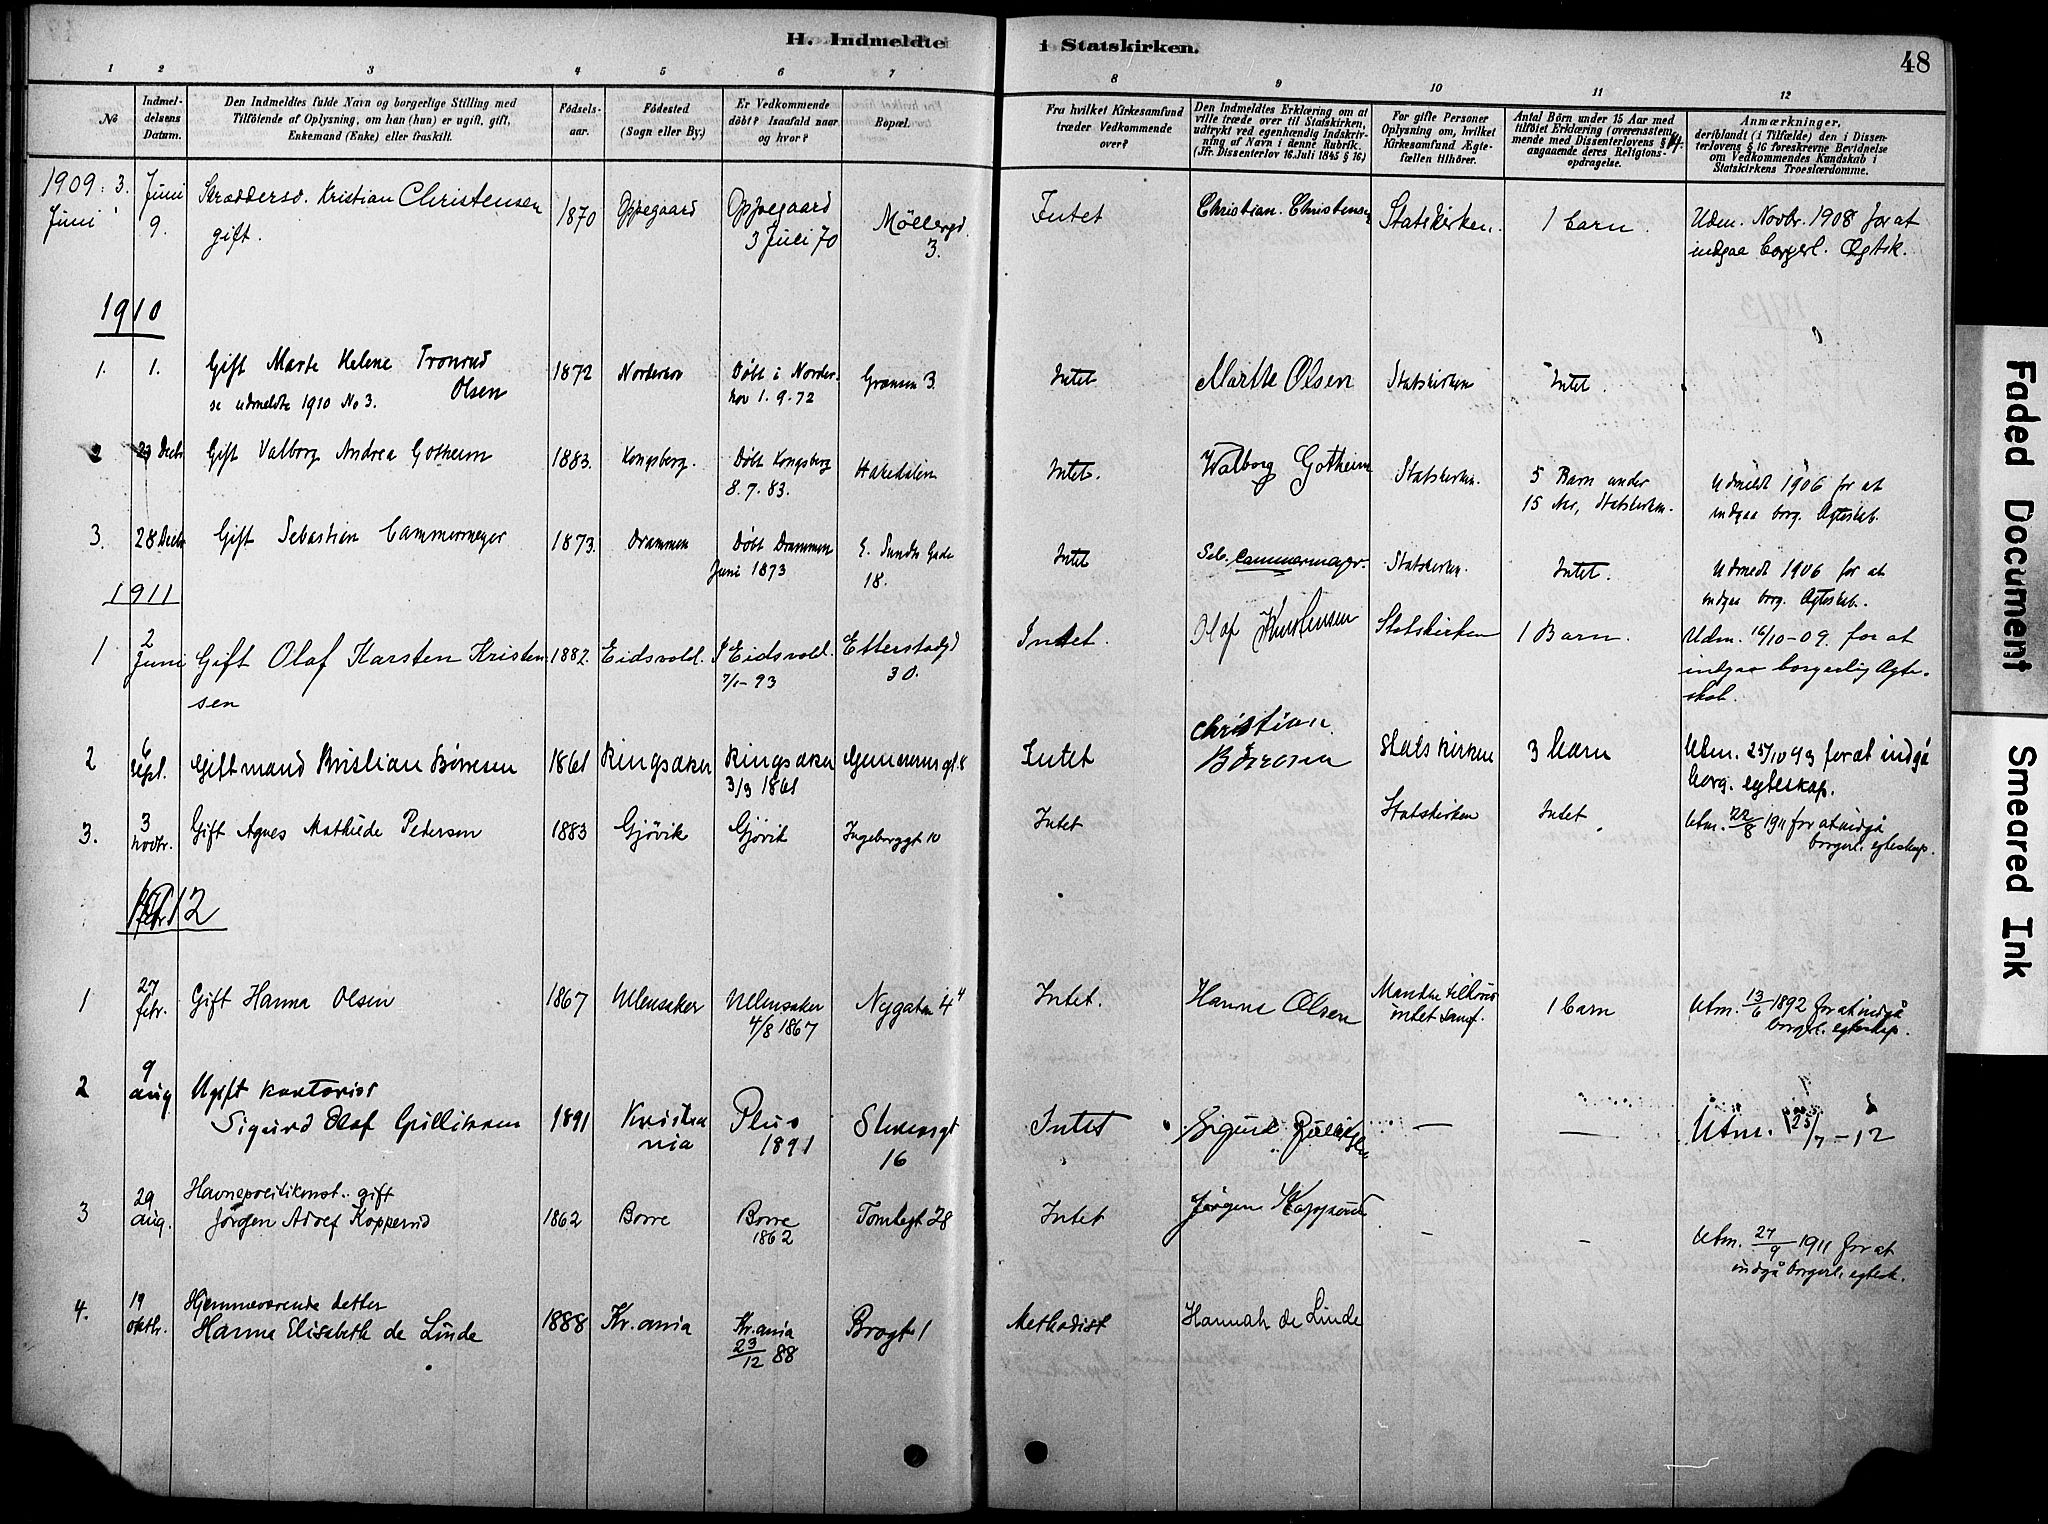 H. Indmeldte i Statskirken.
48
1 2 3 4 5 6 7 8 9 10 11 12
No
Indmeldelsens Datum.
Den Indmeldtes fulde Navn og borgerlige Stilling med
Tilföiende af Oplysning, om han (hun) er ugift, gift,
Enkemand (Enke) eller fraskilt.
Födselsaar.
Födested
(Sogn eller By.)
Er Vedkommende
döbt? Isaafald naar
og hvor?
Bopæl.
Fra hvilket Kirkesamfund
træder Vedkommende
over?
Den Indmeldtes Erklæring om at
ville træde over til Statskirken,
udtrykt ved egenhændig Indskrivning af Navn i denne Rubrik.
(Jfr. Dissenterlov 16 Juli 1845 § 16)
For gifte Personer
Oplysning om, hvilket
Kirkesamfund Ægtefællen tilhörer.
Antal Börn under 15 Aar med
tilföiet Erklæring (overensstemmende med Dissenterlovens §
angaaende deres Religionsopdragelse.
Anmærkninger,
deriblandt (i Tilfælde) den i Dissenterlovens § 16 foreskrevne Bevidnelse
om Vedkommendes Kundskab i
Statskirkens Troeslærdomme.
1909: 3. Juni Juni 9. Skræddersv. Kristian Christensen gift. 1870 Oppegaard Oppegaard 3 Juli 70 Möllergd. 3. Intet Christian. Christensen Statskirken. 1 barn. Udm. Novbr. 1908 for at
indgaa borgerl. Ægtsk.
1910
1. 1. Gift Marte Helene Tronrud Olsen 1872 Norderhov Döbt i Norderhov 1. 9. 72 Grænsen 3. Intet Marthe Olsen Statskirken Intet.
se udmeldte 1910 No 3.
2 29 Decbr Gift Valborg Andrea Gotheim 1883. Kongsberg. Döbt Kongsberg 8. 7. 83. Haredalen Intet. Walborg Gotheim Statskirken. 5 Barn under
15 Aar, Statskirken. Udmeldt 1906 for at
indgaa borg. Ægteskab.
3. 28 Decbr Gift Sebastian Cammermeyer 1873. Drammen Döbt Drammen Juni 1873 E. Sundts Gade 18. Intet Seb. Cammermeyer. Statskirken. Intet. Udmeldt 1906 for at
indgaa borg. Ægteskab.
1911
1 2 Juni Gift Olaf Karsten Kristensen 1882. Eidsvold. I Eidsvold. 7/1-93 Etterstadgd 30. Intet. Olaf Kristensen Statskirken 1 Barn. Udm. 16/10-09. for at
indgaa borgerlig Ægteskab.
2 6 sept. Giftmand Kristian Börresen 1861 Ringsaker Ringsaker 3/3 1861 Intet Christian Statskirken 3 barn Utm. 25/10 93 for at indgå
borg. egteskap.
3. 3 novbr. Gift Agnes Mathilde Petersen 1883 Gjövik Gjövik Ingeborggt 10 Intet Statskirken Intet. Utm. 22/8 1911 for at indgå
borgerl. egteskap.
1912
1 27 febr. Gift Hanna Olsen 1867 Ullensaker Ullensaker 4/8 1867 Nygaten 4 Intet. Hanna Olsen Manden tilhörer
intet samf. 1 barn Utm. 13/6 1892 for at indgå
borgerl. egteskap.
2 9 aug Ugift kontorist
Sigurd Olaf Gulliksen 1891 Kristiania 1891 16 Intet Sigurd Gulliksen — — Utm. 25/7-12
3 29 aug. gift
Jörgen Adolf Kopperud 1862 Borre Borre 1862 Tomtegt 28 Intet Jörgen Kopperud - - Utm. 27/9 1911 for at
indgå borgerl. egtesk.
4. 19 oktbr. Hjemmeværende datter
Hanna Elisabeth de Linde 1888 Kr.ania Kr.ania 23/12 88 Brogt 1 Methodist Hannah de Linde
Faded Document
Smeared Ink